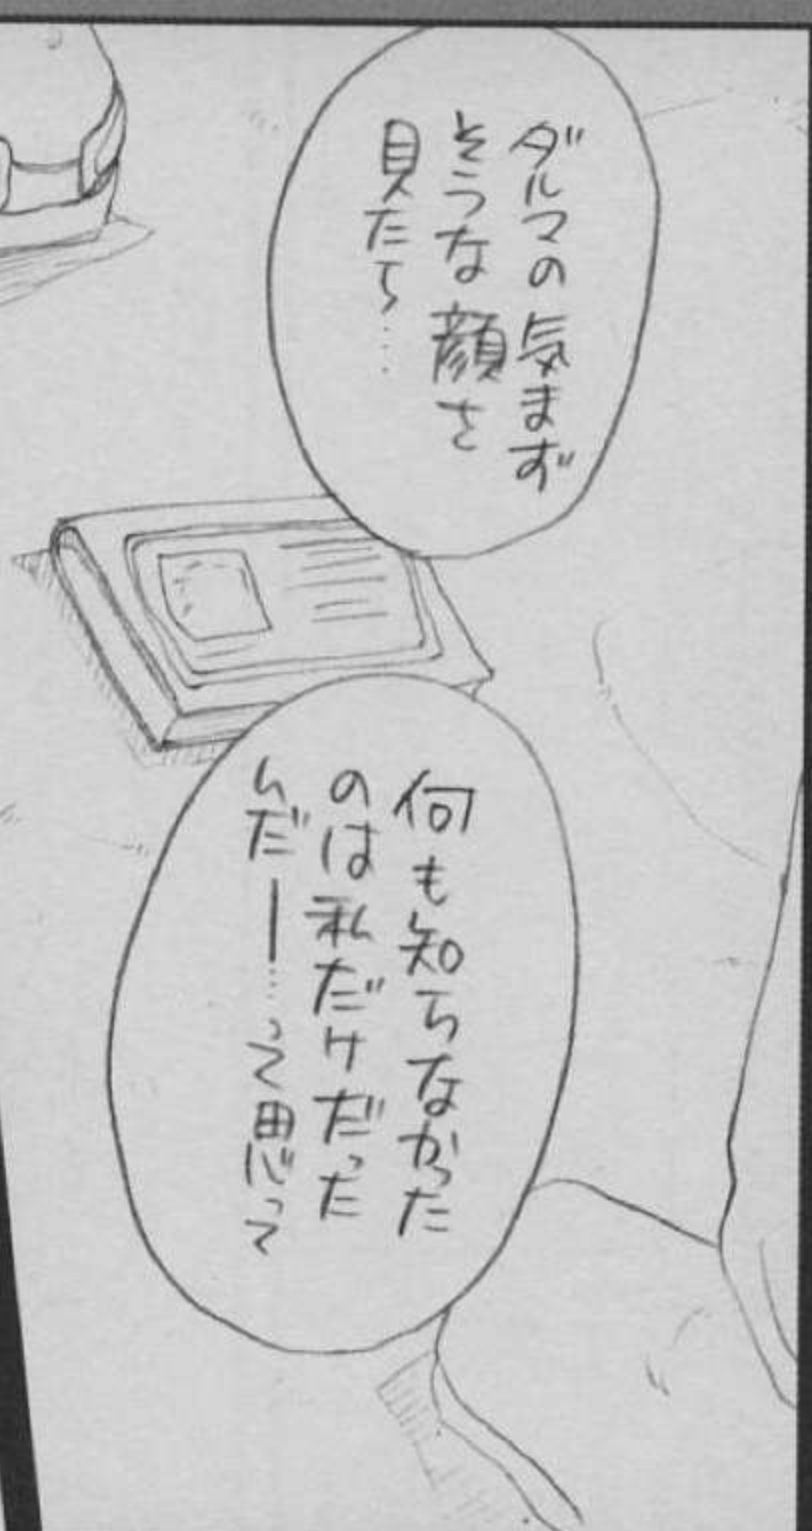 ダルマの気まず
そうな顔を
見たら…
何も知らなかった
のは私だけだった
んだー…って思って